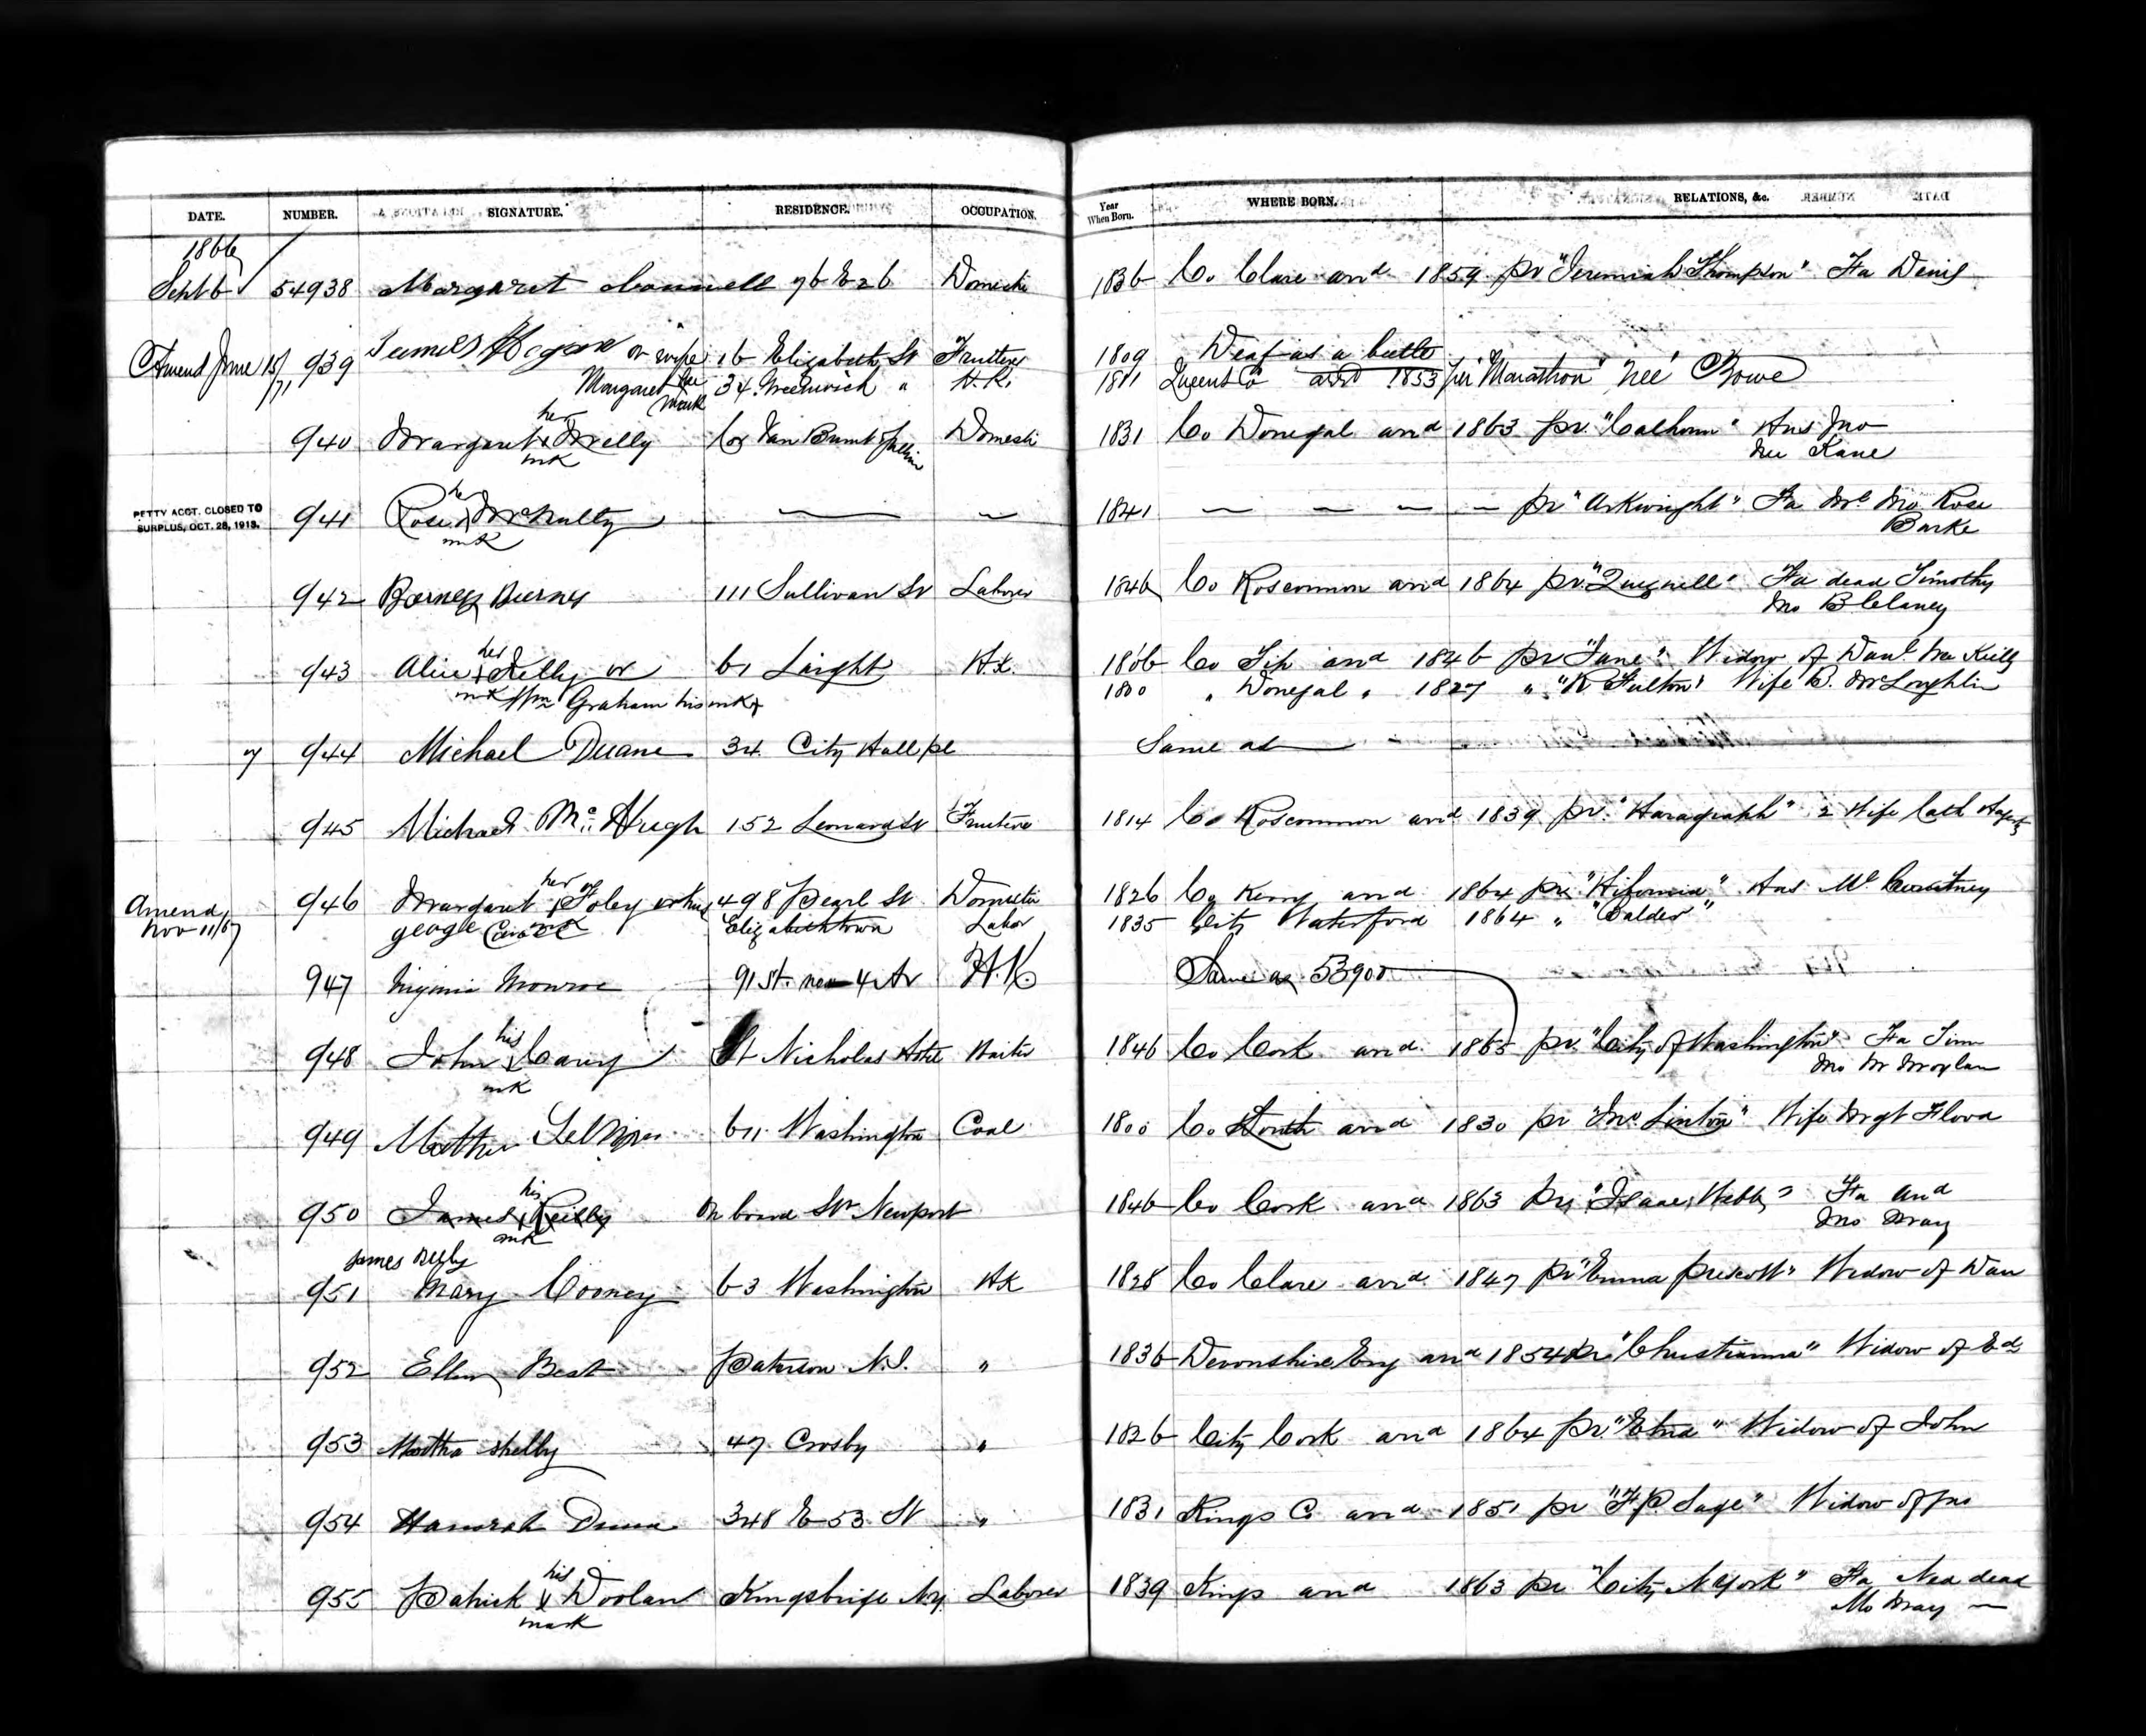 DATE. NUMBER. SIGNATURE. RESIDENCE. OCCUPATION. Year When Born. WHERE BORN. RELATIONS, &c.
1866
Sept 6 54938 Margaret Connell 76 E 26 Domestic 1836 Co Clare arrd 1859 pr "Jeremiah Thompson" Fa Denis
Amend June 15/71 939 James Hogan or wife 16 Elizabeth St Fruiterer 1809 Deaf as a beetle
Margaret her mark 34 Greenwich " H.K. 1811 Queens Co arrd 1853 per "Marathon" née Bowe
940 Margaret her x mk Melly Cor Van Brunt Domestic 1831 Co Donegal arrd 1863 pr "Calhoun" Hus Jno
nee Kane
PETTY ACCT. CLOSED TO
SURPLUS, OCT. 28, 1913.
941 Rose her x mk McNulty — — 1841 — — — — pr "Arkwright" Fa Ml Mo Rose
Burke
942 111 Sullivan St Laborer 1846 Co Roscommon arrd 1864 pr Fa dead Timothy
Mo B Clancy
943 Alice her x mk Kelly or 61 Laight H.K. 1806 Co Tip arrd 1846 pr "Jane" Widow of Danl
Wm Graham his mk x 1800 " Donegal " 1827 " "R Fulton" Wife B. McLoughlin
7 944 Michael Duane 34 City Hall pl Same as
945 Michael Mc Hugh 152 Leonard St Fruiterer 1814 Co Roscommon arrd 1839 pr 2 Wife Cath
946 Margaret her x mk Foley or 498 Pearl St Domestic 1826 Co Kerry arrd 1864 pr "Hibernia" Hus Ml Courtney
Amend Nov 11/67 george Elizabethtown Labor 1835 City Waterford 1864 " "Calder"
947 Virginia Monroe 91 St. near 4 Av H.K. Same as 53900
948 John his x mk Carey St Nicholas Hotel Waiter 1846 Co Cork arrd 1865 pr "City of Washington" Fa Tim
Mo M Moylan
949 611 Washington Coal 1800 Co Louth arrd 1830 pr "Jno Linton" Wife Mgt Flood
950 James his x mk Reilly On board Str Newport 1846 Co Cork arrd 1863 pr "Isaac Webb" Fa and
Mo Mary
James Reily
951 Mary Cooney 63 Washington HK 1828 Co Clare arrd 1847 pr "Emma Prescott" Widow of Dan
952 Ellen Best Paterson N.J. " 1836 Devonshire Eng arrd 1854 pr "Christianna" Widow of Ed
953 Martha Shelby 47 Crosby " 1826 City Cork arrd 1864 pr "Etna" Widow of John
954 Hannah Dunn 348 E 53 St " 1831 Kings Co arrd 1851 pr "F.P. Sage" Widow of Jas
955 Patrick his x mark Doolan Kingsbrige N.Y. Laborer 1839 Kings arrd 1863 pr "City N York" Fa Ned dead
Mo Mary —